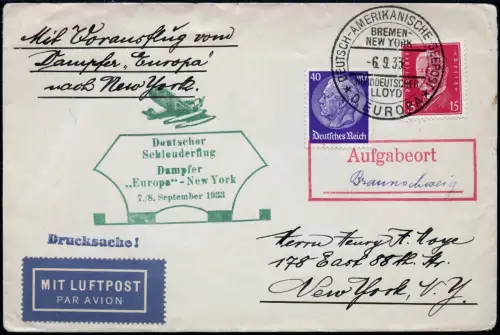 Mit Vorausflug vom
Dampfer „Europa"
nach New York.
DEUTSCH-AMERIKANISCHE SEEPOST
BREMEN-
NEW YORK
-6.9.33
NORDDEUTSCHER
LLOYD
D. EUROPA
40 40
Deutsches Reich
15
Deutscher
Schleuderflug
Dampfer
„Europa"-New York
7./8. September 1933
Aufgabeort
Braunschweig
Drucksache!
MIT LUFTPOST
PAR AVION
Herrn Henry A. Meye
178 East 88th Str.
New York, N.Y.